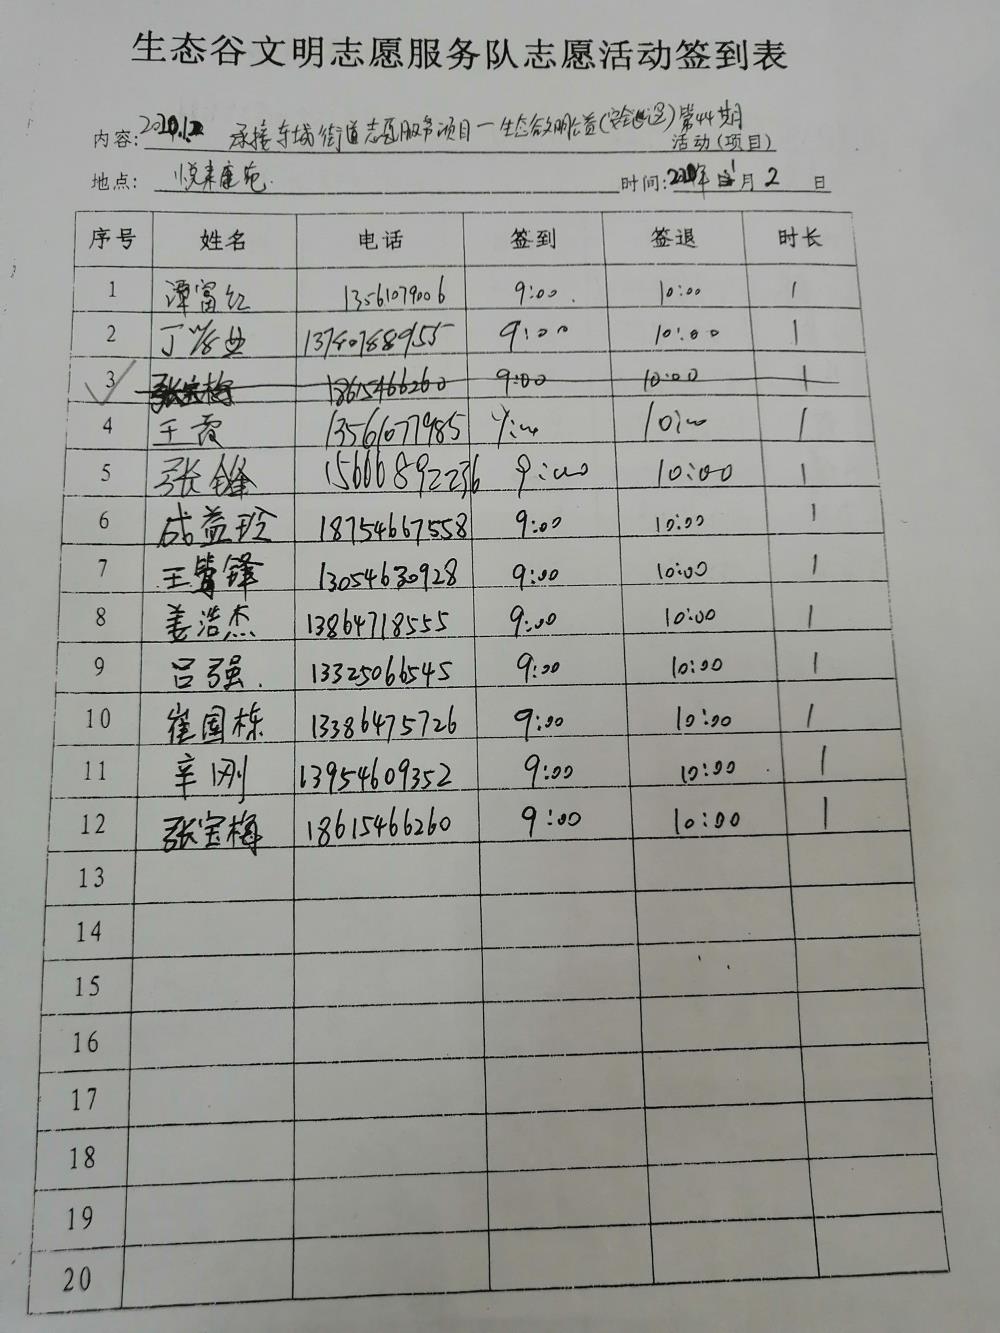 生态谷文明志愿服务队志愿活动签到表
内容: 承接东城街道志愿服务项目一生态谷文明公益(安全巡逻)第44期 活动(项目)
地点: 悦来康苑 时间: 年 月 2 日
序号 姓名 电话 签到 签退 时长
1 谭富红 13561079006 9:00 10:00 1
2 丁 13780788955 9:00 10:00 1
3 张宝梅 18615466260 9:00 10:00 1
4 王霞 13561077985 9:00 10:00 1
5 张锋 15666892236 9:00 10:00 1
6 成益玲 18754667558 9:00 10:00 1
7 王 锋 13054630928 9:00 10:00 1
8 姜浩杰 13864718555 9:00 10:00 1
9 吕强 13325066545 9:00 10:00 1
10 崔国栋 13386475726 9:00 10:00 1
11 辛刚 13954609352 9:00 10:00 1
12 张宝梅 18615466260 9:00 10:00 1
13
14
15
16
17
18
19
20